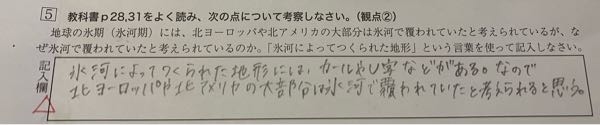 5 教科書p28,31をよく読み、次の点について考察しなさい。(観点②)
地球の氷期(氷河期)には、北ヨーロッパや北アメリカの大部分は氷河で覆われていたと考えられているが、な
ぜ氷河で覆われていたと考えられているのか。「氷河によってつくられた地形」という言葉を使って記入しなさい。
記入欄
氷河によってつくられた地形には、カールやU字などがある。なので
北ヨーロッパや北アメリカの大部分は氷河で覆われていたと考えられると思う。